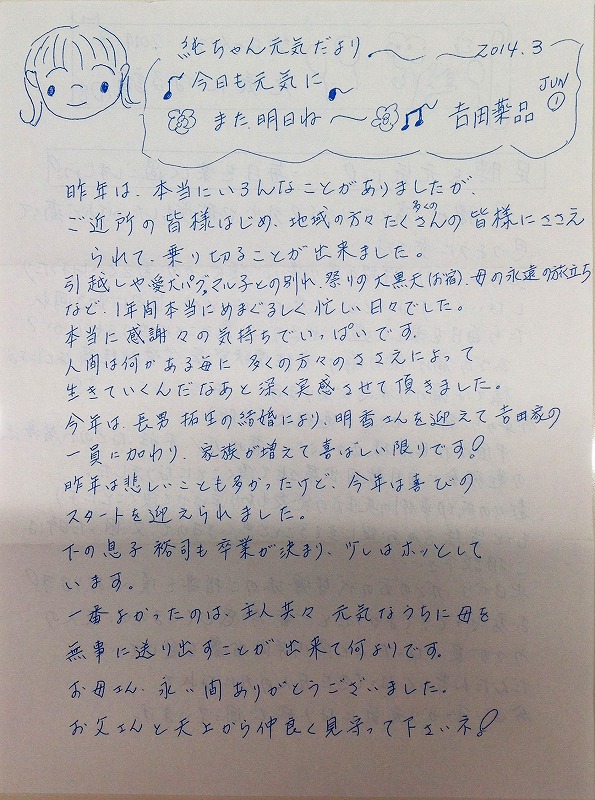 純ちゃん元気だより 〜 2014.3
♪ 今日も元気に
また明日ね〜 ♫ 吉田薬品 JUN ①
昨年は、本当にいろんなことがありましたが、
ご近所の皆様はじめ、地域の方々たくさんの多くの皆様にささえ
られて、乗り切ることが出来ました。
引越しや愛犬パグマル子との別れ、祭りの大黒天(お宿)、母の永遠の旅立ち
など、1年間本当にめまぐるしく忙しい日々でした。
本当に感謝々の気持ちでいっぱいです。
人間は何かある毎に 多くの方々のささえによって
生きていくんだなあと深く実感させて頂きました。
今年は、長男 祐生の結婚により、明香さんを迎えて吉田家の
一員に加わり、家族が増えて喜ばしい限りです!
昨年は悲しいことも多かったけど、今年は喜びの
スタートを迎えられました。
下の息子 裕司も卒業が決まり、少しはホッとして
います。
一番よかったのは、主人共々 元気なうちに母を
無事に送り出すことが出来て何よりです。
お母さん、永い間ありがとうございました。
お父さんと天上から仲良く見守って下さいネ!